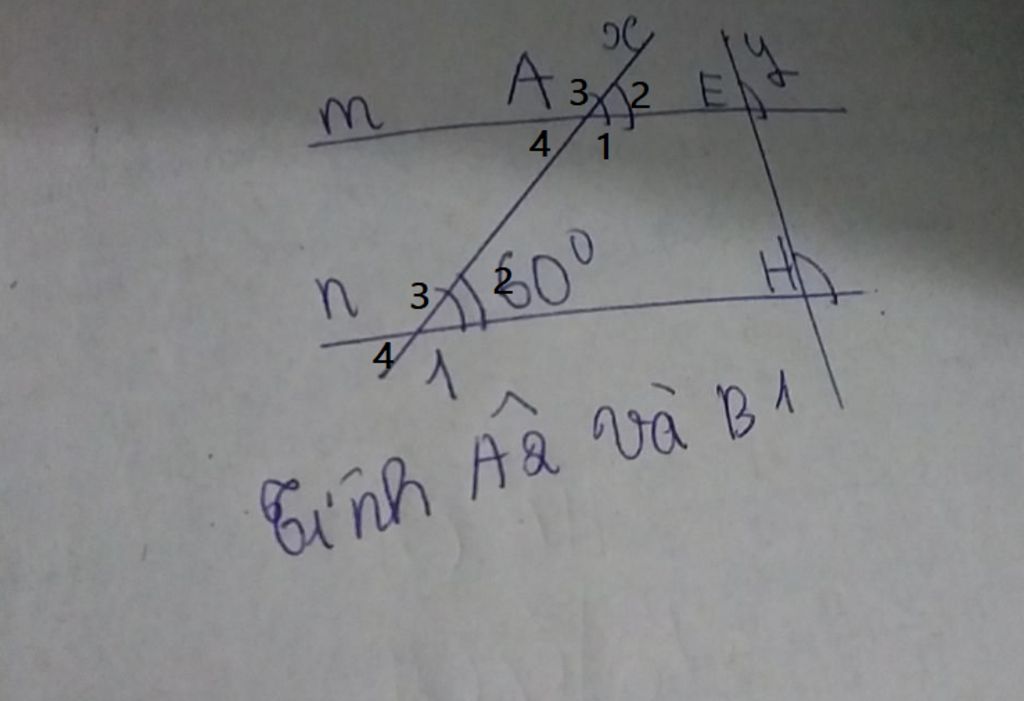 x
y
A 3 2 E
m
4 1
n 3 2 60⁰ H
4 1
Tính Â2 và B1